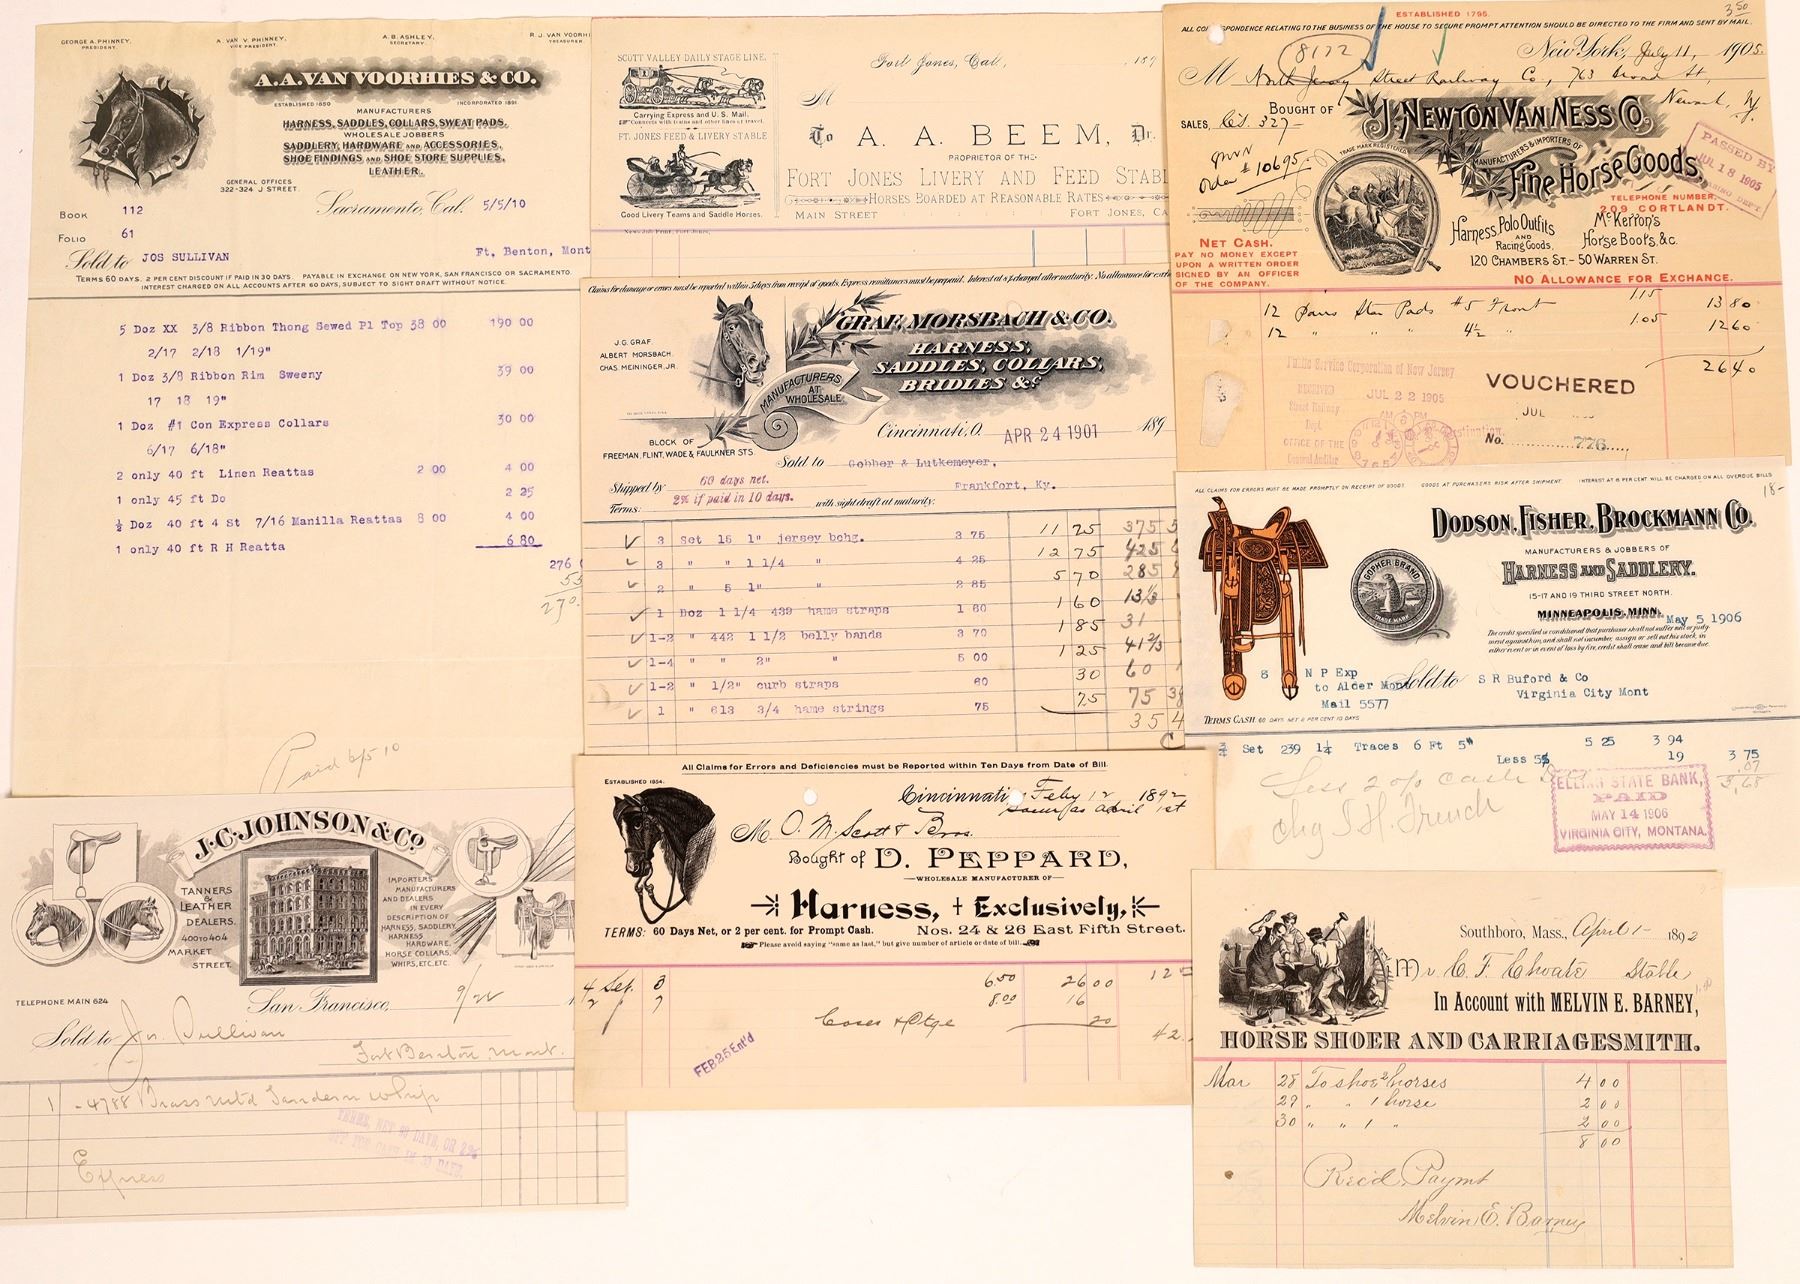 GEORGE A. PHINNEY, PRESIDENT.
A. VAN V. PHINNEY, VICE PRESIDENT.
A. B. ASHLEY, SECRETARY.
R. J. VAN VOORHI
TREASURER.
A. A. VAN VOORHIES & CO.
ESTABLISHED 1850
INCORPORATED 1891
MANUFACTURERS
HARNESS, SADDLES, COLLARS, SWEAT PADS,
WHOLESALE JOBBERS
SADDLERY, HARDWARE AND ACCESSORIES,
SHOE FINDINGS AND SHOE STORE SUPPLIES,
LEATHER.
GENERAL OFFICES
322-324 J STREET.
Sacramento, Cal. 5/5/10
Book 112
Folio 61
Ft, Benton, Mont
Sold to JOS SULLIVAN
TERMS 60 DAYS. 2 PER CENT DISCOUNT IF PAID IN 30 DAYS. PAYABLE IN EXCHANGE ON NEW YORK, SAN FRANCISCO OR SACRAMENTO.
INTEREST CHARGED ON ALL ACCOUNTS AFTER 60 DAYS, SUBJECT TO SIGHT DRAFT WITHOUT NOTICE.
5 Doz XX 3/8 Ribbon Thong Sewed Pl Top 38 00 190 00
2/17 2/18 1/19"
1 Doz 3/8 Ribbon Rim Sweeny 39 00
17 18 19"
1 Doz #1 Con Express Collars 30 00
6/17 6/18"
2 only 40 ft Linen Reattas 2 00 4 00
1 only 45 ft Do 2 25
½ Doz 40 ft 4 St 7/16 Manilla Reattas 8 00 4 00
1 only 40 ft R H Reatta 6 80
276
270.
Paid 6/5 10
SCOTT VALLEY DAILY STAGE LINE,
Carrying Express and U. S. Mail.
Connects with trains and other lines of travel.
FT. JONES FEED & LIVERY STABLE
Good Livery Teams and Saddle Horses.
Fort Jones, Cal., 189
M
To A. A. BEEM, Dr.
PROPRIETOR OF THE
FORT JONES LIVERY AND FEED STABL
HORSES BOARDED AT REASONABLE RATES
MAIN STREET FORT JONES, CA
ESTABLISHED 1795.
3 50
ALL CORRESPONDENCE RELATING TO THE BUSINESS OF THE HOUSE TO SECURE PROMPT ATTENTION SHOULD BE DIRECTED TO THE FIRM AND SENT BY MAIL.
8172
New York, July 11, 1905.
M North Jersey Street Railway Co, 763 Broad St,
Newark, NJ.
BOUGHT OF
J. NEWTON VAN NESS CO.
SALES,
327
MANUFACTURERS & IMPORTERS OF
Fine Horse Goods,
Order # 10695
TRADE MARK REGISTERED.
PASSED BY
JUL 18 1905
TELEPHONE NUMBER,
209 CORTLANDT.
Harness, Polo Outfits
AND
Racing Goods,
McKerron's
Horse Boots, &c.
120 CHAMBERS ST. - 50 WARREN ST.
NET CASH.
PAY NO MONEY EXCEPT
UPON A WRITTEN ORDER
SIGNED BY AN OFFICER
OF THE COMPANY.
NO ALLOWANCE FOR EXCHANGE.
12 Pairs Star Pads #5 Front 1.15 13 80
12 " " " 4½ " 1.05 12 60
26 40
Public Service Corporation of New Jersey
RECEIVED
JUL 22 1905
Street Railway
Dept.
OFFICE OF THE
General Auditor
VOUCHERED
JUL
No. 776
Claims for damage or errors must be reported within 5 days from receipt of goods. Express remittances must be prepaid. Interest at 8% charged after maturity. No allowance for exch
GRAF, MORSBACH & CO.
HARNESS,
SADDLES, COLLARS,
BRIDLES &c.
J. G. GRAF.
ALBERT MORSBACH.
CHAS. MEININGER, JR.
MANUFACTURERS
AT
WHOLESALE
BLOCK OF
FREEMAN, FLINT, WADE & FAULKNER STS.
Cincinnati, O. APR 24 1901 189
Sold to Gobber & Lutkemeyer,
Frankfort, Ky.
Shipped by
Terms:
60 days net.
2% if paid in 10 days.
with sight draft at maturity.
3 Set 15 1" jersey bchg. 3 75 11 25 375
3 " " 1 1/4 " 4 25 12 75 425
2 " 5 1" " 2 85 5 70 285
1 Doz 1 1/4 439 hame straps 1 60 1 60 13⅓
1-2 " 442 1 1/2 belly bands 3 70 1 85 31
1-4 " " 2" " 5 00 1 25 41⅔
1-2 " 1/2" curb straps 60 30 60
1 " 613 3/4 hame strings 75 75 75
35 4
ALL CLAIMS FOR ERRORS MUST BE MADE PROMPTLY ON RECEIPT OF GOODS. GOODS AT PURCHASERS RISK AFTER SHIPMENT. INTEREST AT 8 PER CENT WILL BE CHARGED ON ALL OVERDUE BILLS
18-
DODSON, FISHER, BROCKMANN CO.
MANUFACTURERS & JOBBERS OF
HARNESS AND SADDLERY.
GOPHER BRAND
TRADE MARK
15-17 AND 19 THIRD STREET NORTH.
MINNEAPOLIS, MINN. May 5 1906
The credit specified is conditioned that purchaser shall not suffer nor judg-
ment against him, and shall not incumber, assign or sell out his stock, in
either event or in event of loss by fire, credit shall cease and bill become due.
8 N P Exp
to Alder Mont
Mail 5577
Sold to S R Buford & Co
Virginia City Mont
TERMS CASH 60 DAYS NET 2 PER CENT 10 DAYS
¾ Set 239 1¼ Traces 6 Ft 5" 5 25 3 94
Less 5% 19 3 75
.07
3.68
Less 2 o/o cash
chg J. H. French
ELLING STATE BANK,
PAID
MAY 14 1906
VIRGINIA CITY, MONTANA.
J. C. JOHNSON & CO.
TANNERS
&
LEATHER
DEALERS.
400 TO 404
MARKET
STREET.
IMPORTERS
MANUFACTURERS
AND DEALERS
IN EVERY
DESCRIPTION OF
HARNESS, SADDLERY,
HARNESS
HARDWARE,
HORSE COLLARS,
WHIPS, ETC. ETC.
TELEPHONE MAIN 624
San Francisco, 9/22 1
Sold to Jos. Sullivan
Fort Benton, Mont.
1 - 4788 Brass Mt'd Tandem whip
TERMS, NET 60 DAYS, OR 2%
OFF FOR CASH IN 30 DAYS.
Express
All Claims for Errors and Deficiencies must be Reported within Ten Days from Date of Bill.
ESTABLISHED 1854.
Cincinnati, Feby 12 1892
Same as April 1st
M O. M. Scott & Bros.
Bought of D. PEPPARD,
WHOLESALE MANUFACTURER OF
Harness, Exclusively,
TERMS: 60 Days Net, or 2 per cent. for Prompt Cash. Nos. 24 & 26 East Fifth Street.
Please avoid saying "same as last," but give number of article or date of bill.
4 Set 8 6.50 26 00
2 " 7 8.00 16
20
42.
FEB 25 Ent'd
Southboro, Mass., April 1 - 1892
Mr C. F. Choate Stable
In Account with MELVIN E. BARNEY,
HORSE SHOER AND CARRIAGESMITH.
Mar 28 To shoe 2 horses 4 00
29 " " 1 horse 2 00
30 " " 1 " 2 00
8 00
Rec'd Paymt
Melvin E. Barney